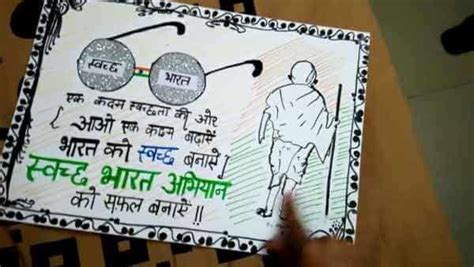 स्वच्छ भारत
एक कदम स्वच्छता की ओर
आओ एक कदम बढ़ायें
भारत को स्वच्छ बनायें
स्वच्छ भारत अभियान
को सफल बनायें !!